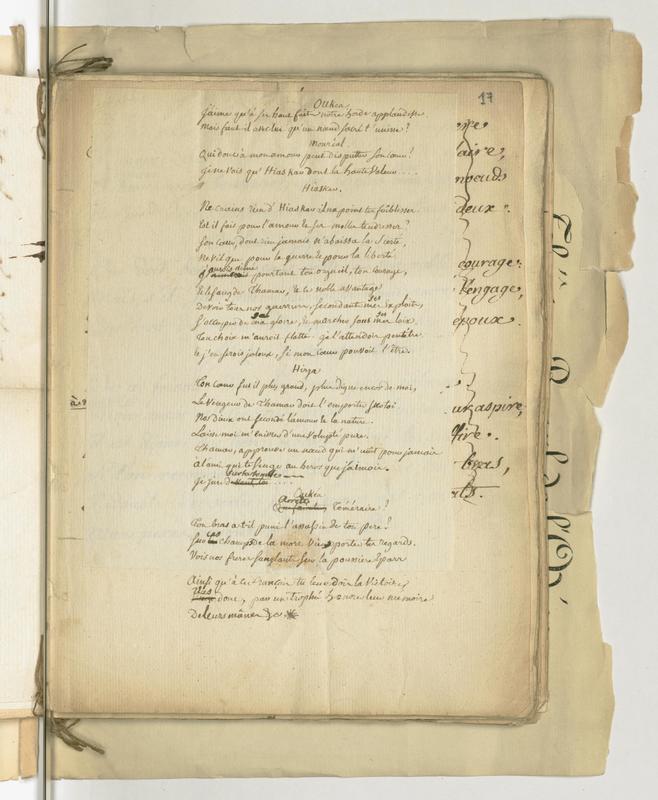 17
Oukea
J'aime qu'à ser haut fait notre horde applaudisse
Mais faut-il avec lui qu'un nœud sacré t'unisse?
Mouréal.
Qui donc à mon amour peut disputer son cœur!
Je ne vois qu'Hiaskar dont la haute valeur....
Hiaskar.
Ne crains rien d'Hiaskar il n'a point ton faiblesse
Est il fait pour l'amour le ser molle tendresse?
Son cœur, dont rien jamais n'abaissa la fierté,
Ne vit que pour la guerre et pour la liberté
pourtant ton orgueil, ton courage,
Et le sang de Thamar, et le noble avantage
De voir tous nos guerriers, secondant ses exploits,
S'occuper de sa gloire, et marcher sous ses loix,
Ton choix m'auroit flatté je l'attendois peut être
Et j'en serois jaloux, si mon cœur pouvoit l'être.
Hirza
Ton cœur fut il plus grand, plus digne encor de moi,
Le Vengeur de Thamar doit l'emporter sur toi
Nos Dieux ont secondé l'amour et la nature.
Laisse moi m'enivrer d'une volupté pure.
Thamar, approuve un nœud qui m'unit pour jamais
A l'ami qui te venge au heros que j'aimois.
Je jure
Oukea
Arrête Téméraire!
Ton bras a t'il puni l'assassin de ton pere?
Sur ces champs de la mort viens porter tes regards.
Vois nos freres sanglants sur la poussiere épars
Ainsi qu'à ce françois tu leur dois la Victoire,
Vas donc, par un trophé honore leur mémoire
De leurs mânes &c
laire,
nœuds
deux.
courage.
l'engage,
époux.
aspire,
bras,